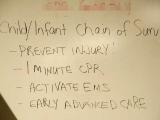 Child/Infant Chain of Surv
- PREVENT INJURY!
- 1 MINUTE CPR
- ACTIVATE EMS
- EARLY ADVANCED CARE